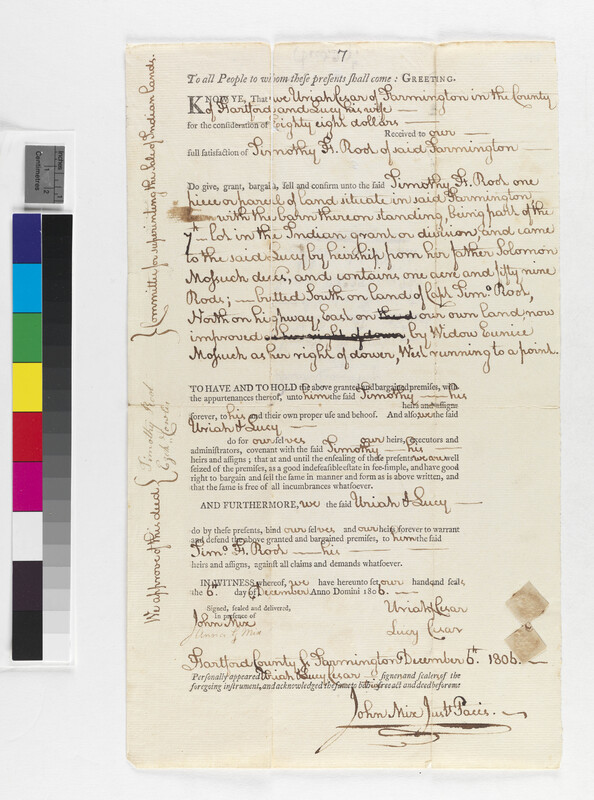 7
To all People to whom these presents shall come: GREETING.
KNOW YE, That we Uriah Cesar of Farmington in the County
of Hartford and Lucy his wife
for the consideration of Eighty eight dollars
Received to our
full satisfaction of Timothy H. Root of said Farmington
Do give, grant, bargain, sell and confirm unto the said Timothy H. Root one
piece or parcel of land situate in said Farmington
with the barn thereon standing, being part of the
7th lot in the Indian grant or division, and came
to the said Lucy by heirship from her father Solomon
Mossuck decd, and contains one acre and fifty nine
Rods; butted South on land of Capt Timo. Root,
North on highway, East on our own land now
improved by Widow Eunice
Mossuck as her right of dower, West running to a point.
TO HAVE AND TO HOLD the above granted and bargained premises, with
the appurtenances thereof, unto him the said Timothy his
heirs and assigns
forever, to his and their own proper use and behoof. And also, we the said
Uriah & Lucy
do for ourselves our heirs, executors and
administrators, covenant with the said Timothy his
heirs and assigns; that at and until the ensealing of these presents we are well
seized of the premises, as a good indefeasible estate in fee-simple, and have good
right to bargain and sell the same in manner and form as is above written, and
that the same is free of all incumbrances whatsoever.
AND FURTHERMORE, we the said Uriah & Lucy
do by these presents, bind ourselves and our heirs forever to warrant
and defend the above granted and bargained premises, to him the said
Timo. H. Root his
heirs and assigns, against all claims and demands whatsoever.
IN WITNESS whereof, we have hereunto set our hand and seals,
the 6th day of December Anno Domini 1806.
Signed, sealed and delivered,
in presence of
John Mix
Mix
Uriah Cesar
Lucy Cesar
Hartford County Ss Farmington December 6th. 1806.
Personally appeared Uriah & Lucy Cesar signers and sealers of the
foregoing instrument, and acknowledged the same to be their free act and deed before me
John Mix Just Pacis.
We approve of this deed
Timothy Root
Committee for superinting the sale of Indian lands.
Centimetres
Inches